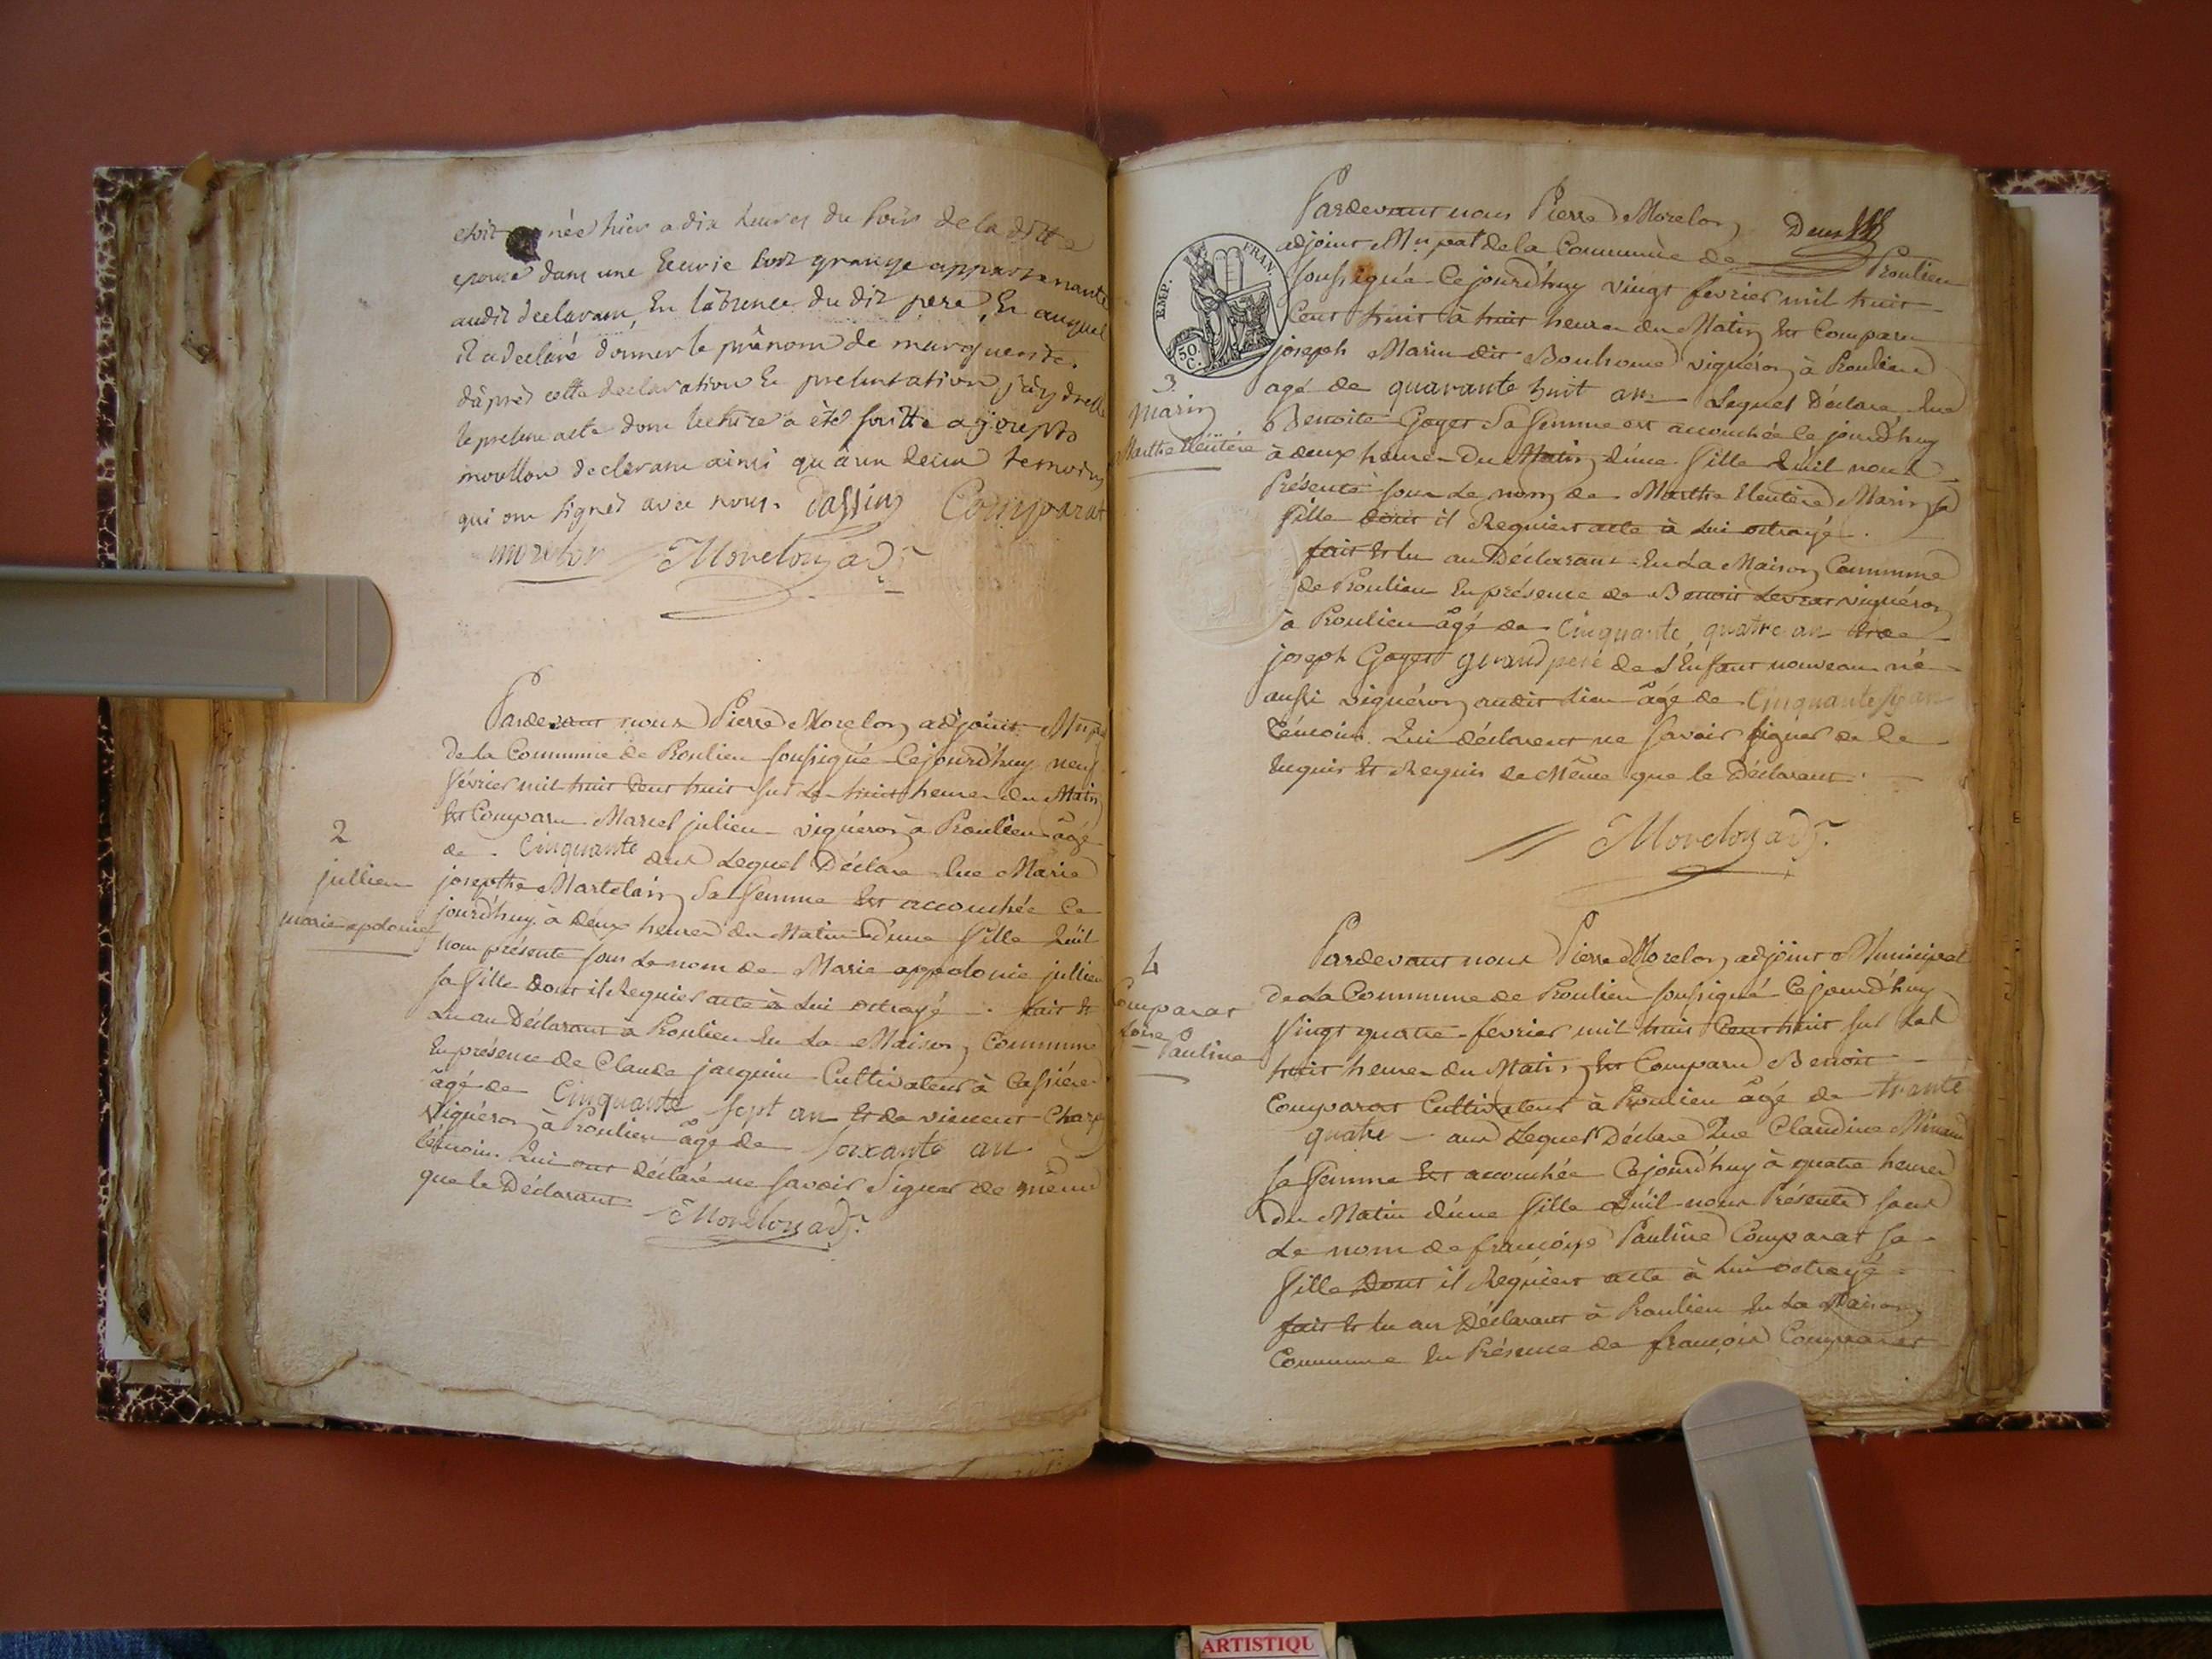 etoit née hier a dix heures du soir de la ditte
epouse dans une Ecurie soit grange appartenante
audit declarant, En l'absence du dit pere, En auquel
il a declaré donner le prénom de marguerite.
d'après cette declaration Et presentation j'ay dressé
le present acte dont lecture a été faitte a joseph
moullon declarant ainsi qu'aux deux temoins
qui ont signés avec nous. Dassin Comparat
morelon Morelon adj.
Pardevant nous Pierre Morelon adjoint Mupal
de la Commune de Poulieu soussigné Cejourd'huy neuf
février mil huit Cent huit sur Le huit heures du Matin
Est Comparu Marcel julien vignéron à Poulieu âgé
de Cinquante ans Lequel Déclare Que Marie
2
jullien
marie apolonie
josepthe Martelain Sa femme Est accouchée Ce
jourd'huy à deux heures du Matin d'une fille Quil
nous présente sous Le nom de Marie appolonie jullien
sa fille Dont il Requier acte à Lui octroyé. fait Et
Lu au Déclarant à Poulieu En La Maison Commune
En présence de Claude jacquin Cultivateur à
âgé de Cinquante sept an Et de vincent Charp
vignéron à Poulieu âgé de soixante an
témoins Qui ont déclaré ne savoir Signer de même
que le Déclarant Morelon adj.
Pardevant nous Pierre Morelon
adjoint Mupal de la Commune de Poulieu
soussigné Cejourd'huy vingt fevrier mil huit
Cent huit à huit heures du Matin Est Comparu
joseph Marin dit Bonhome vignéron à Poulieu
agé de quarante huit an Lequel Déclare Que
EMP. FRAN.
50 C.
3
Marin
Marthe Eleutére
Benoite Goyet Sa femme est accouchée le jourd'huy
à deux heures Du Matin d'une fille Quil nous
Présente sous Le nom de Marthe Eleutère Marin sa
fille dont il Requiert acte à Lui octroyé.
fait Et lu au Déclarant En La Maison Commune
de Poulieu En présence de Benoit Levrat vignéron
à Poulieu âgé de Cinquante quatre an Et de
joseph Goyet grand pere de L'Enfant nouveau né
aussi vignéron audit lieu âgé de Cinquante
témoins Qui déclarent ne savoir signer de Ce
Enquis Et Requis de Même que le Déclarant.
Morelon adj.
4
Comparat
Pauline
Pardevant nous Pierre Morelon adjoint Municipal
de La Commune de Poulieu soussigné Cejourd'huy
Vingt quatre février mil huit Cent huit sur Les
huit heures du Matin Est Comparu Benoit
Comparat Cultivateur à Poulieu âgé de trante
quatre ans Lequel Déclare Que Claudine
sa femme Est accouchée Cejourd'huy à quatre heures
Du Matin d'une fille Quil nous Présente sous
Le nom de françoise Pauline Comparat sa
fille Dont il Requiert acte à Lui octroyé
fait Et lu au Déclarant à Poulieu En La Maison
Commune En Présence de françois Comparat
ARTISTIQU